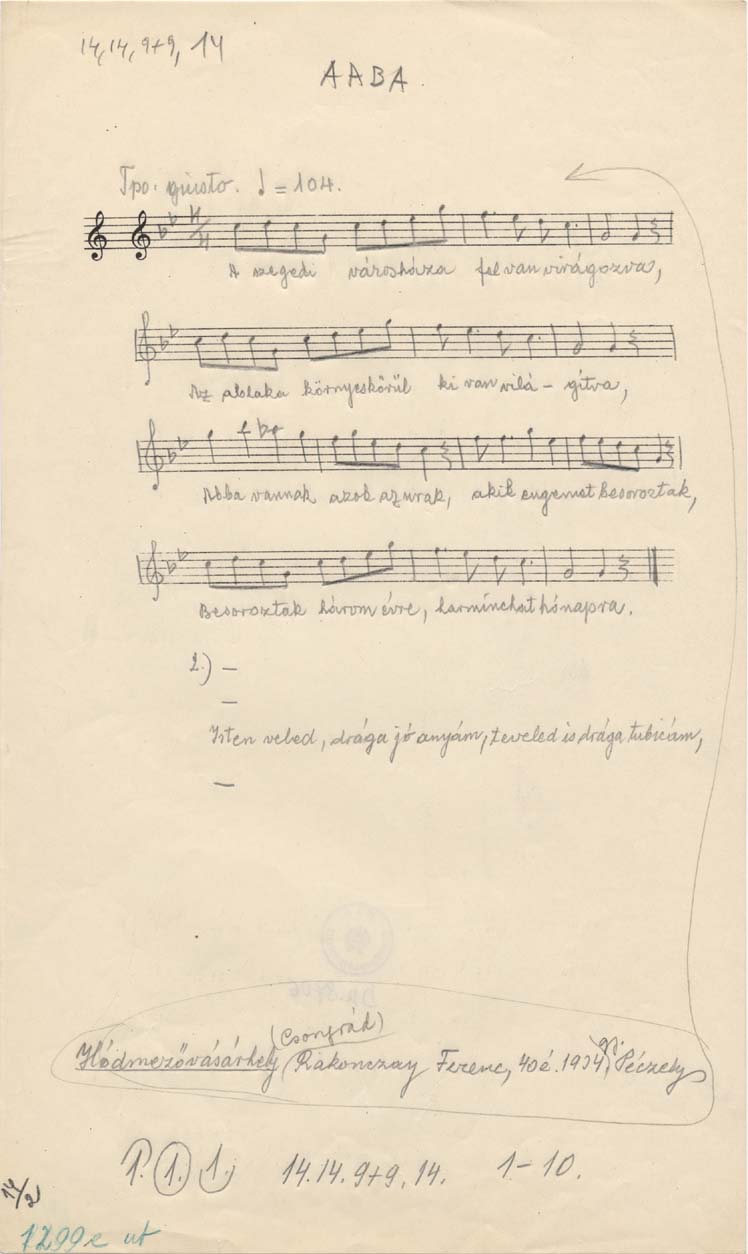 14,14, 9+9, 14
AABA.
Tpo. giusto. ♩ = 104.
A szegedi városháza fel van virágozva,
Az ablaka környeskörül ki van vilá - gítva,
Abba vannak azok az urak, akik engemet besoroztak,
Besoroztak három évre, harminchat hónapra.
2.) —
—
Isten veled, drága jó anyám, teveled is drága tubicám,
—
(Csongrád)
Hódmezővásárhely (Rakonczay Ferenc, 40 é. 1934, Péczely
1. 1. 14.14. 9+9, 14. 1-10.
14/2
1299e ut